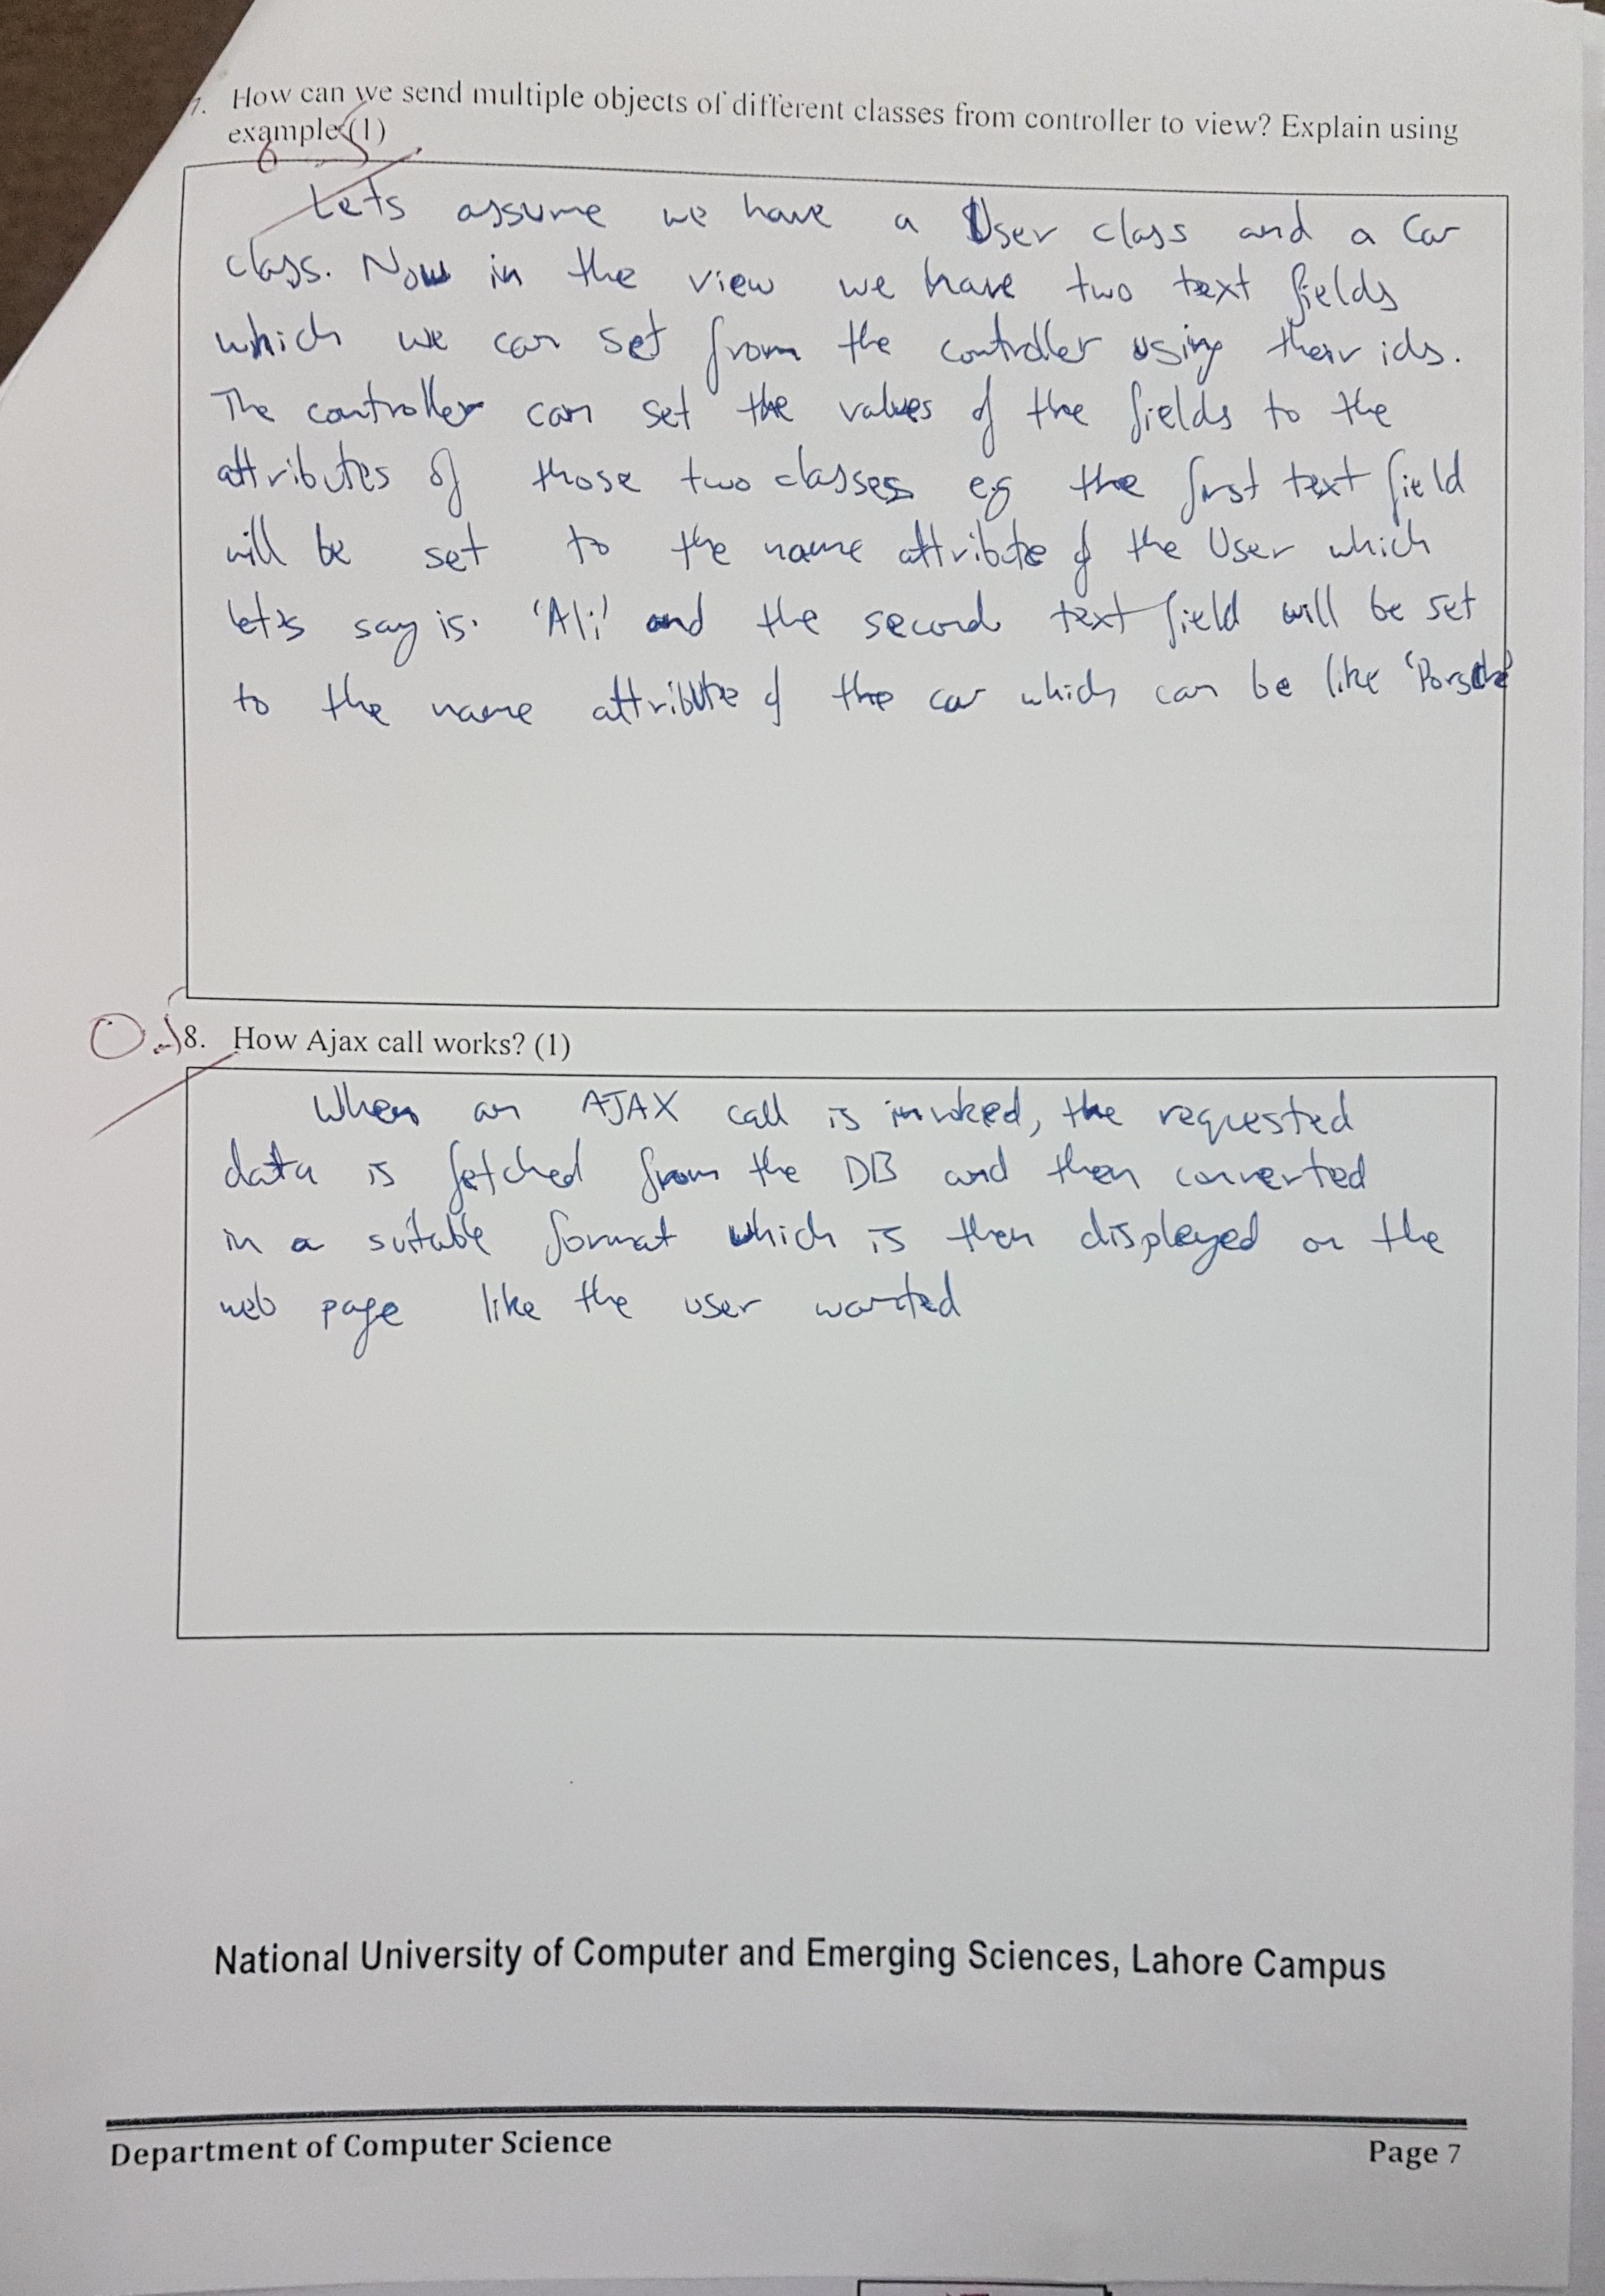 7. How can we send multiple objects of different classes from controller to view? Explain using
example (1)
Lets assume we have a User class and a Car
class. Now in the view we have two text fields
which we can set from the controller using their ids.
The controller can set the values of the fields to the
attributes of those two classes eg the first text field
will be set to the name attribute of the User which
let's say is 'Ali' and the second text field will be set
to the name attribute of the car which can be like 'Porsche'
8. How Ajax call works? (1)
When an AJAX call is invoked, the requested
data is fetched from the DB and then converted
in a suitable format which is then displayed on the
web page like the user wanted
National University of Computer and Emerging Sciences, Lahore Campus
Department of Computer Science
Page 7